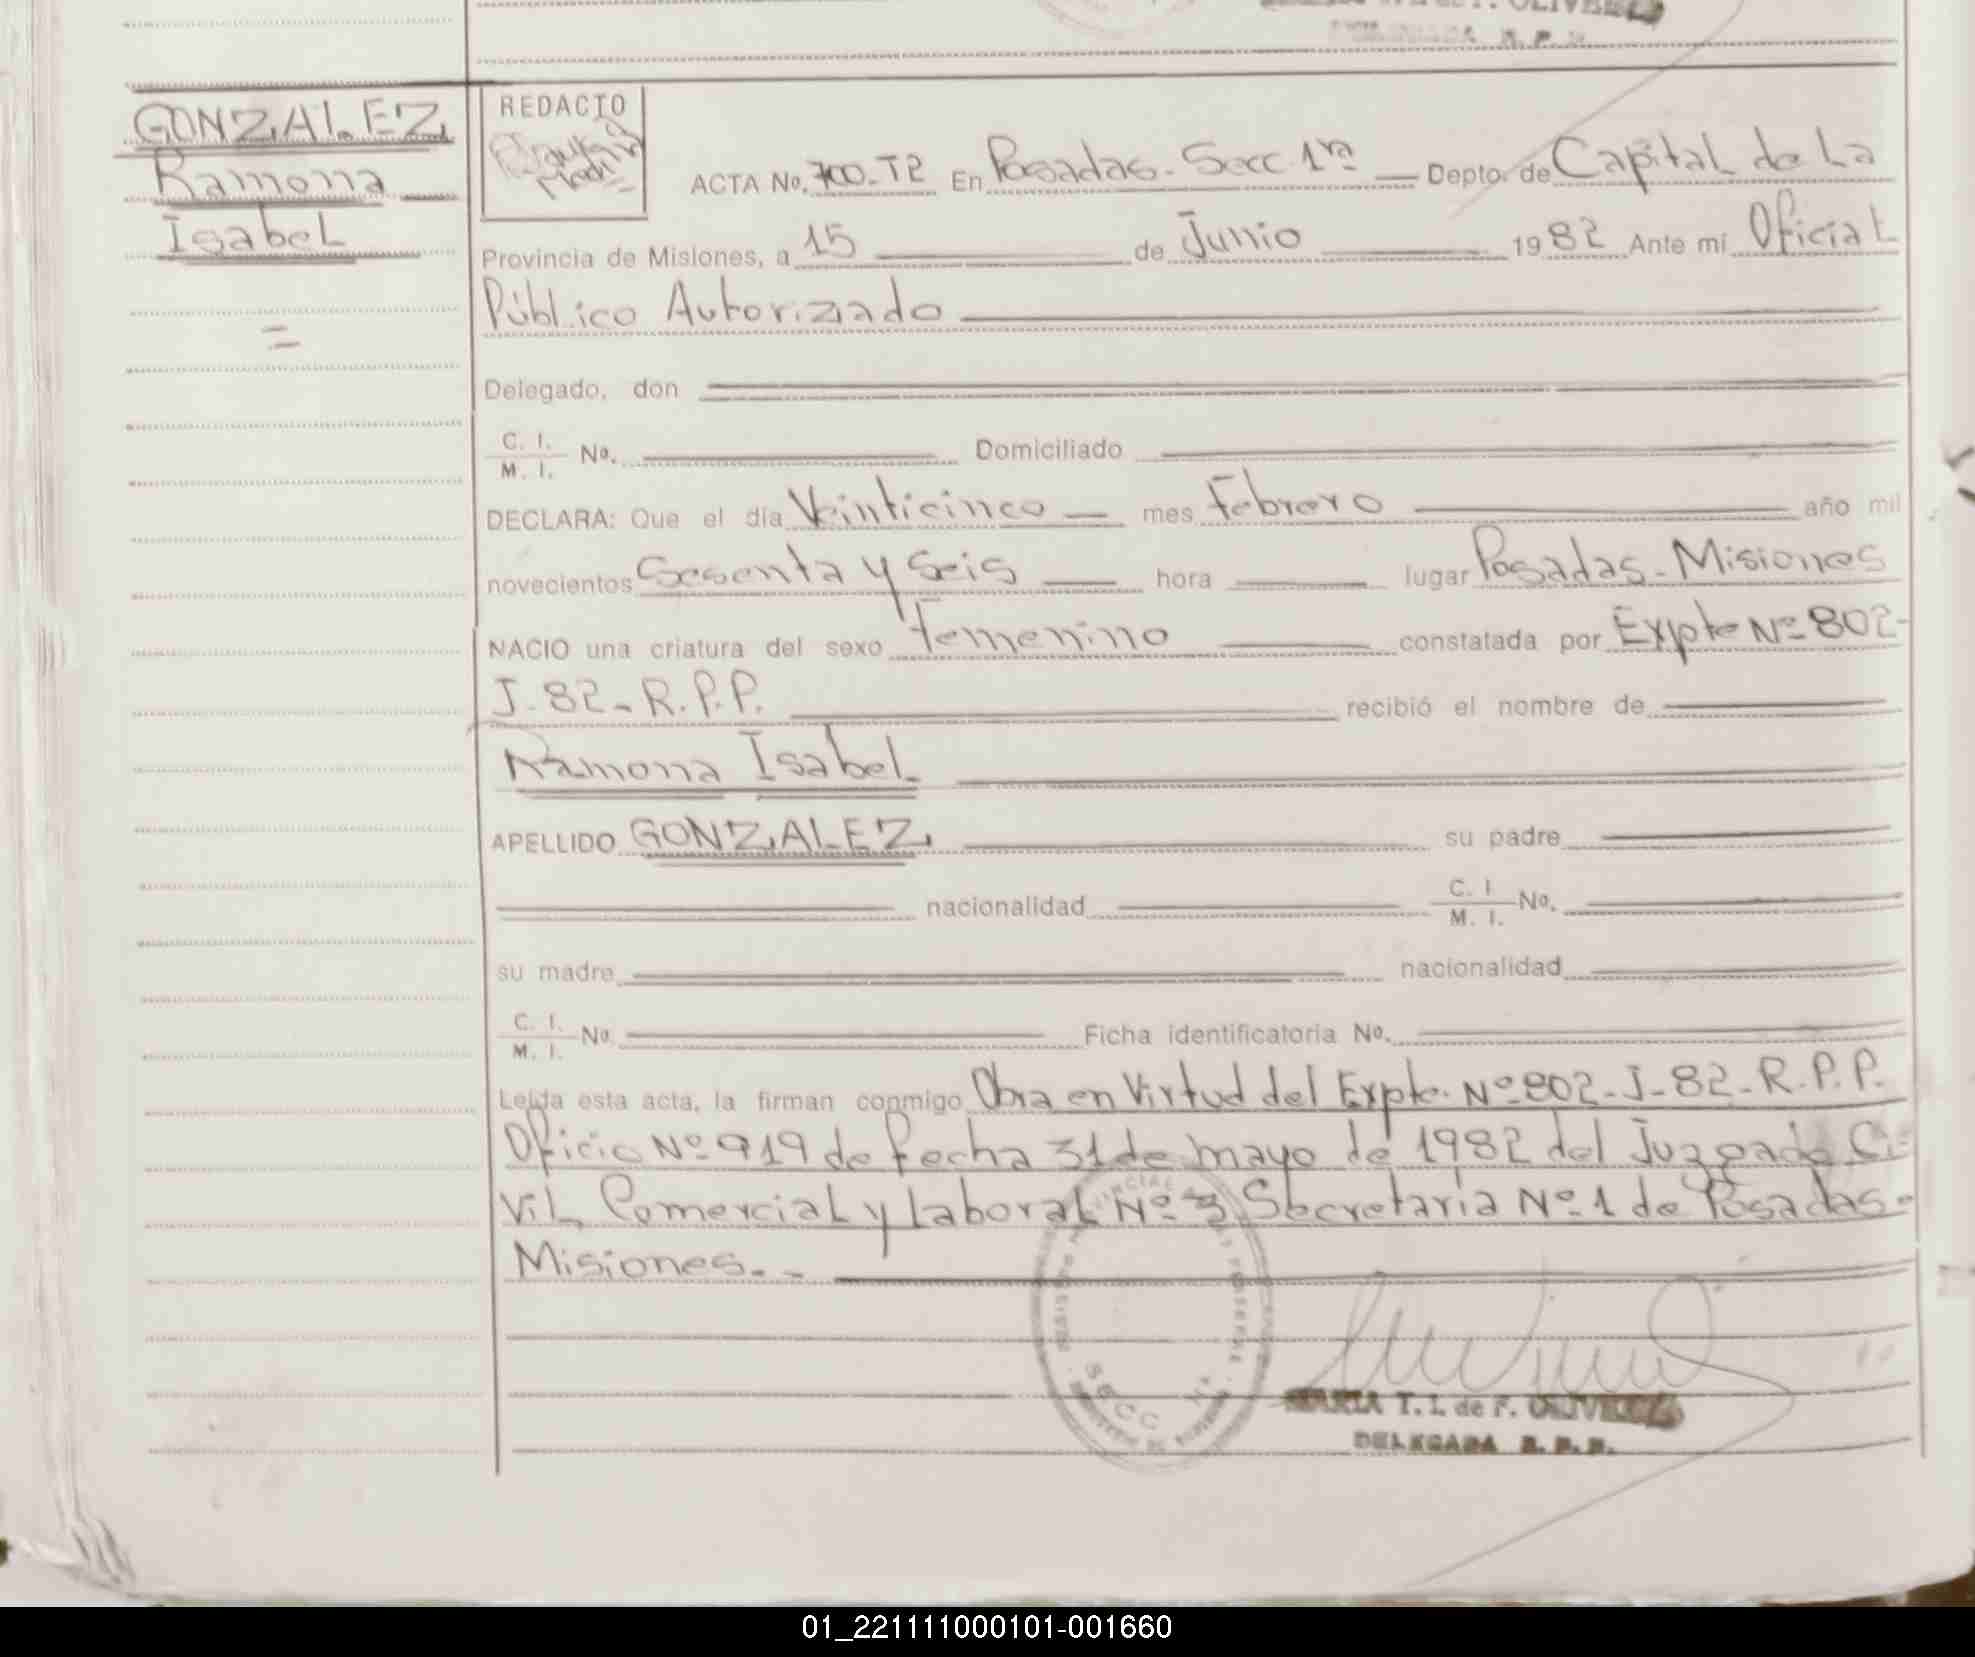 GONZALEZ
Ramona
Isabel
=
REDACTO
ACTA No. 700-T2 En Posadas- Secc 1ra Depto. de Capital de La
Provincia de Misiones, a 15 de Junio 1982 Ante mí Oficial
Público Autorizado
Delegado, don
C. I.
M. I. No. Domiciliado
DECLARA: Que el día Veinticinco mes Febrero año mil
novecientos Sesenta y Seis hora lugar Posadas-Misiones
NACIO una criatura del sexo Femenino constatada por Expte Nº 802-
J-82-R.P.P. recibió el nombre de
Ramona Isabel
APELLIDO GONZALEZ su padre
nacionalidad C. I.
M. I. No.
su madre nacionalidad
C. I.
M. I. No. Ficha identificatoria No.
Leída esta acta, la firman conmigo Obra en Virtud del Expte. Nº 802-J-82-R.P.P.
Oficio Nº 919 de fecha 31 de mayo de 1982 del Juzgado Ci-
vil, Comercial y Laboral Nº 3 Secretaria Nº 1 de Posadas-
Misiones.-
SECC
MARIA T. I. de F. OLIVEIRA
DELEGADA R. P. P.
01_221111000101-001660